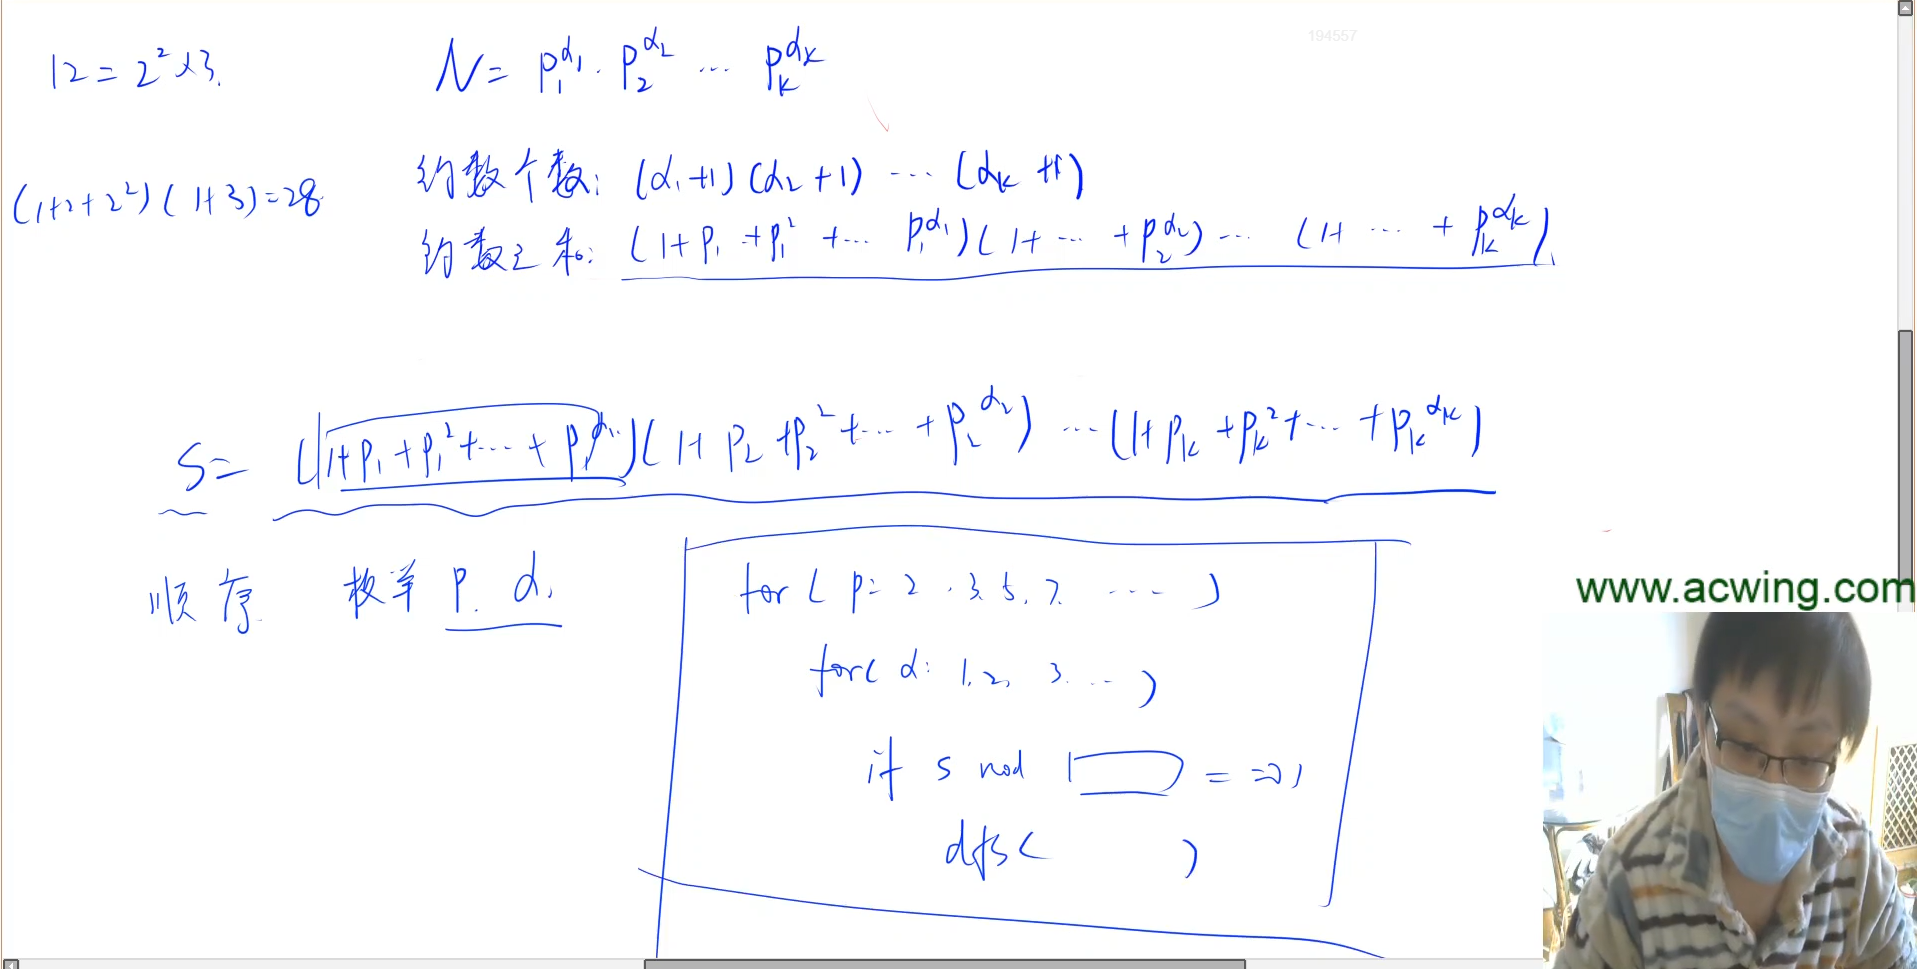 194557
12 = 2² × 3.
N = p₁^α₁ · p₂^α₂ ... pₖ^αₖ
(1+2+2²)(1+3)=28
约数个数: (α₁+1)(α₂+1) ... (αₖ+1)
约数之和: (1+p₁+p₁²+... p₁^α₁)(1+...+p₂^α₂)... (1+ ... + pₖ^αₖ)
S = (1+p₁+p₁²+...+p₁^α₁)(1+p₂+p₂²+...+p₂^α₂) ... (1+pₖ+pₖ²+...+pₖ^αₖ)
顺序. 枚举 p. α.
for ( p: 2. 3. 5. 7. ... )
for( α: 1, 2, 3. ... )
if S mod == 0)
dfs( )
www.acwing.com